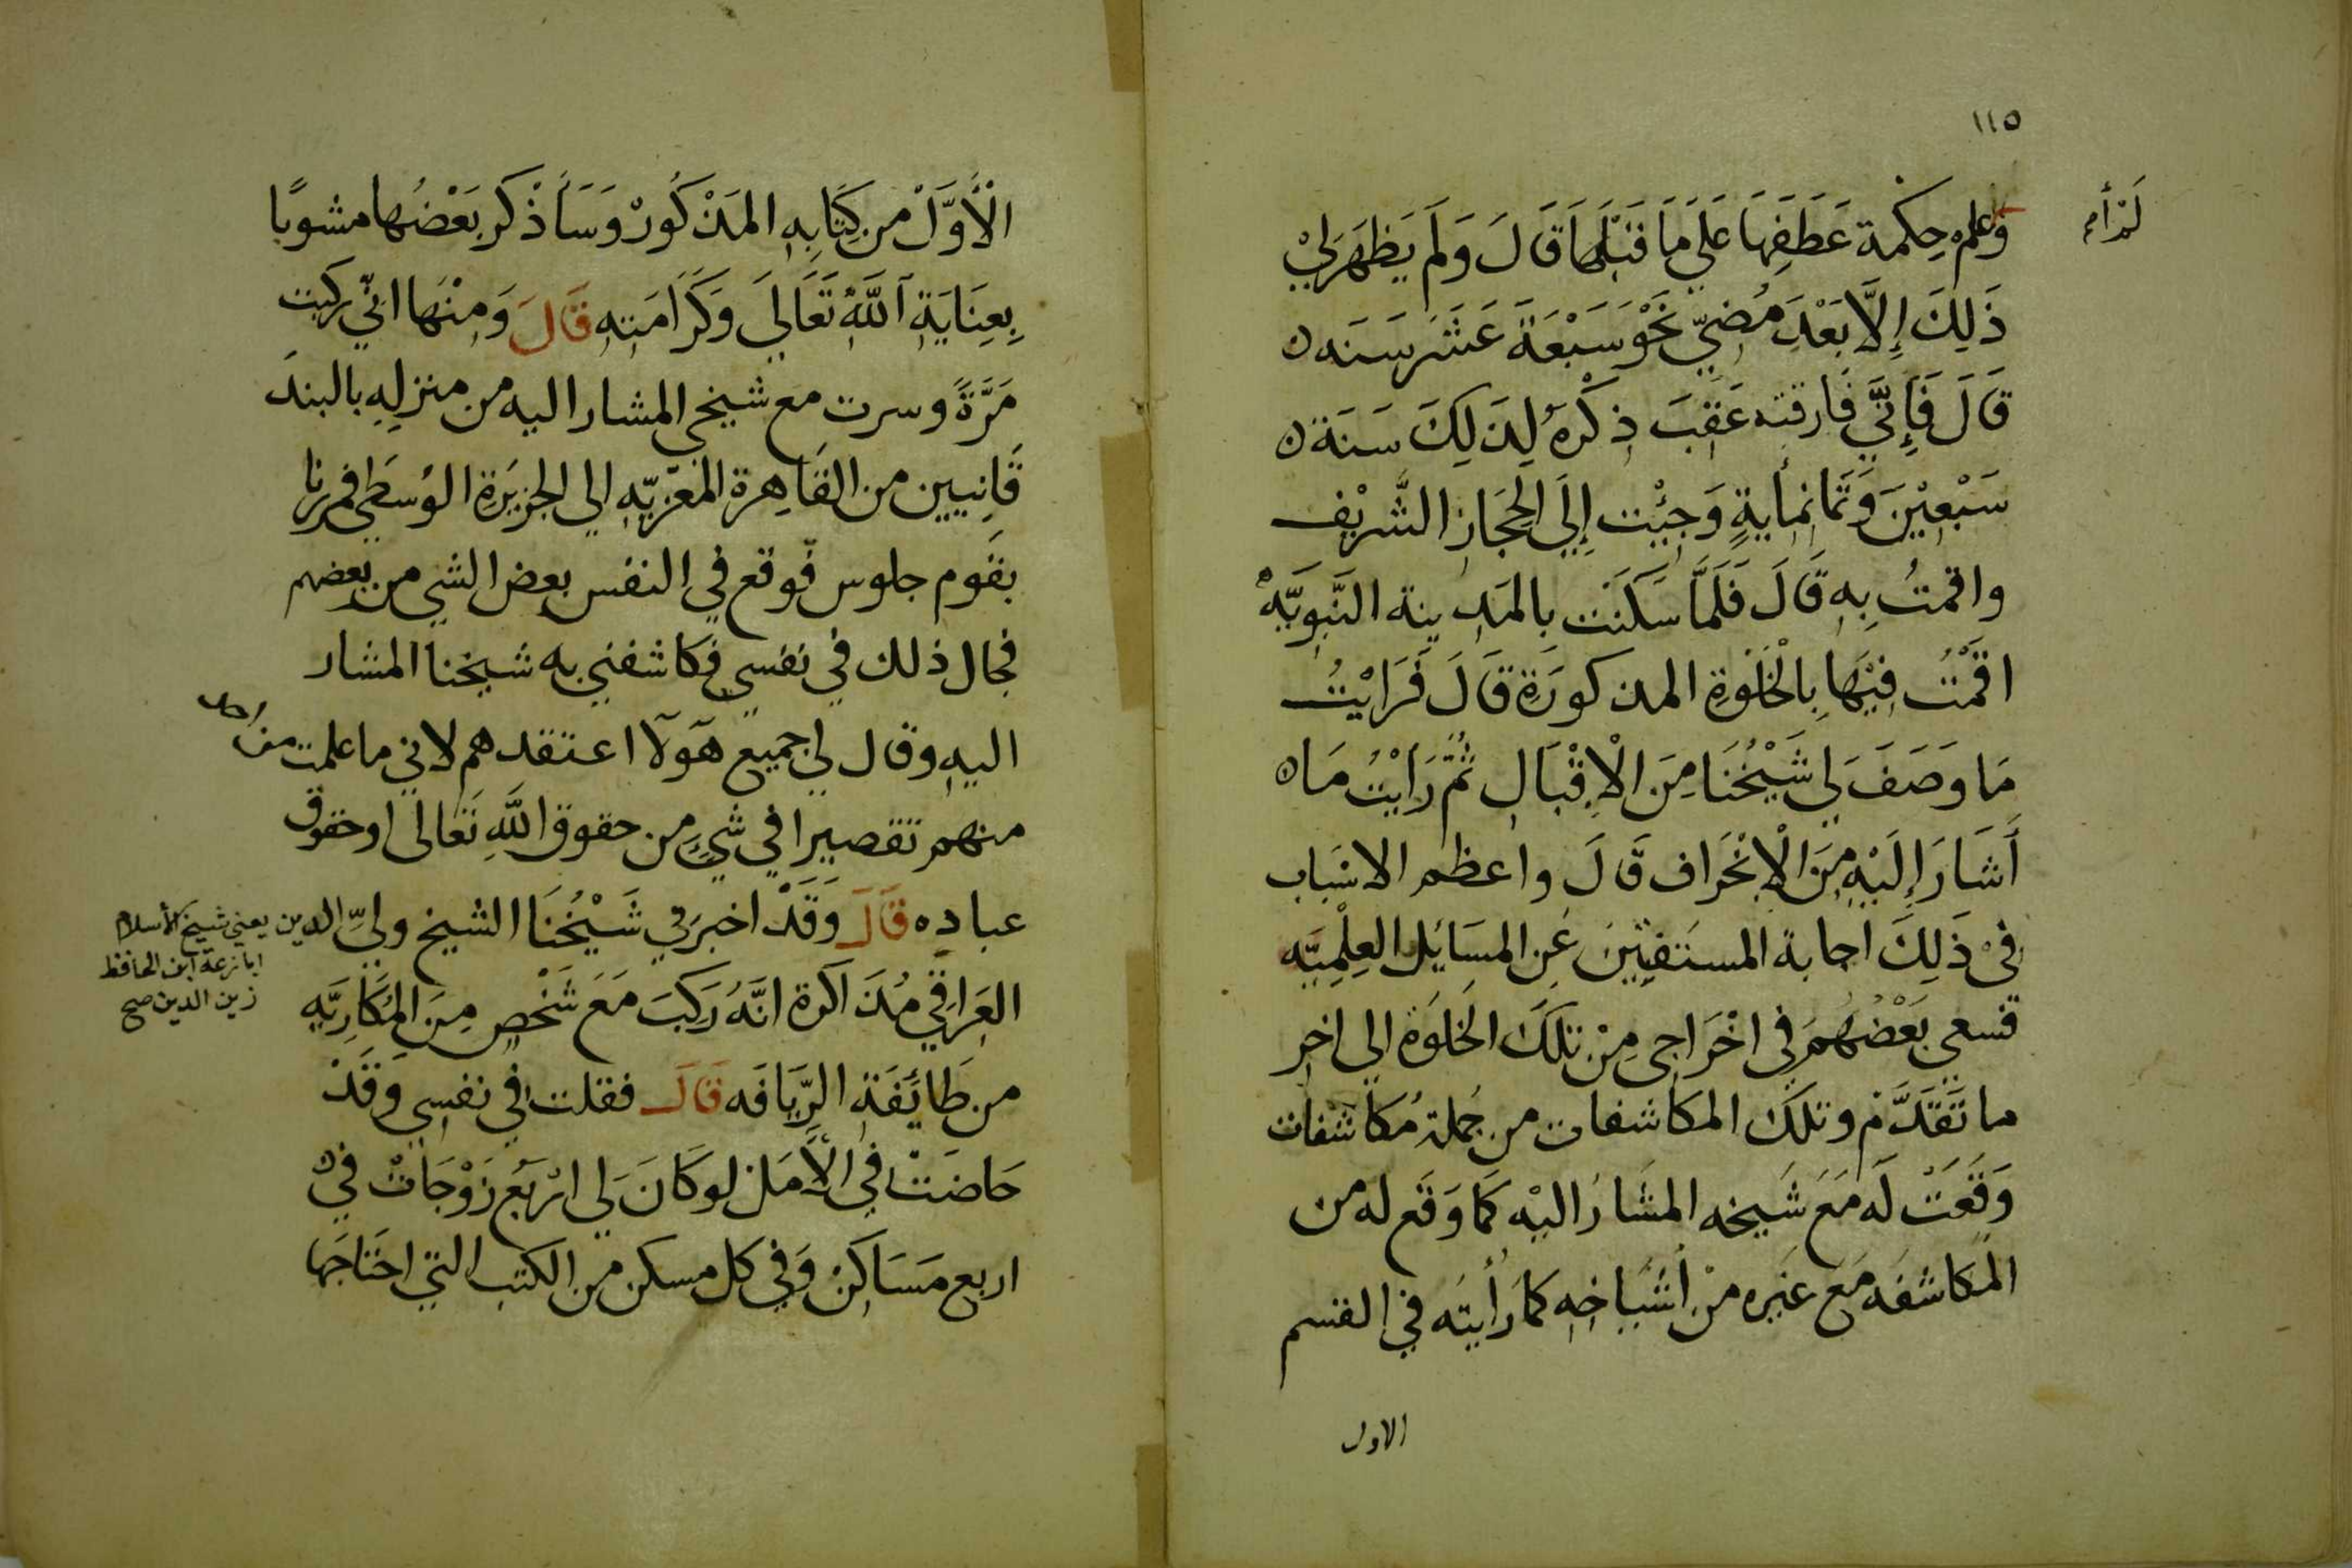 ١١٥
لم أر
وعلم حِكمة عَطَفِهَا عَلَي مَا قَبْلَهَا قَالَ وَلَم يَظهَر لِيْ
ذَلِكَ إِلَّا بَعْدَ مُضيّ نَحْو سَبْعَةَ عَشَر سَنَه
قَالَ فَإِنِّي فَارقته عَقِبَ ذِكْرِهُ لِذَلِكَ سَنَة
سَبْعِيْنَ وَثَمَانمأيةٍ وَجِيْت إِلَى الحِجَازِ الشَّريْف
واقمتُ بِهِ قَالَ فَلَمَّا سَكَنْت بالمَدِينة النَّبوِيَّهْ
اقَمْتُ فِيْهَا بِالْخَلْوَةِ المذكورَةِ قَالَ فَرَايْتُ
مَا وَصَفَ لي شَيْخُنَا مِنَ الْاِقْبَالِ ثُمَّ رَايْتُ مَا
أَشَارَ إِلَيْهِ مِنَ الْاِنْحَرَاف قَالَ واعظم الاسْبَاب
فِيْ ذَلِكَ اجابة المستَفتِيْنَ عَنِ المسَائِل العِلْمِيَّه
فسعى بَعْضُهُمَ في اخْرَاجى مِنْ تلكَ الخَلوَة الى اخر
ما تَقَدَّمْ وتلكَ المكاشفات من جُملة مُكاشفات
وَقَعَتْ لَه مَعَ شَيخه المشَارُ اليْه كَمَا وَقَع له من
المكاشفَه مَعَ غيَره مِنْ أشيَاخِه كمَا رَأيتَه في القسم
الاول
الْأَوَّلْ من كِتَابِهِ المَذْكُورْ وَسَأَذْكر بَعْضُها مشوبًا
بِعِنَايَةِ اللَّهِ تَعَالَي وَكَرَامَتِهِ قَالَ وَمِنْهَا انّي ركبت
مَرَّةً وسرت مع شيخي المشار اليه من منزلِهِ بالبندَ
قَانِيين من القَاهِرة المعزيّه الى الجزيَرةِ الوُسطَى فمررنا
بقَوم جلوس فوقع في النفس بعض الشي من بعضهم
فجال ذلك في نفسي فكاشفني به شيخنا المشار
اليهِ وقال لي جميع هَولآ اعتقدهم لاني ما علمت من أحد
منهم تقصيرا في شيءٍ من حقوق اللَّهِ تعَالى او حقوق
عباده قَالَ وَقَدْ اخبرَني شَيْخُنَا الشيخ وليّ الدين يعني شيخ الأسلام
ابا زرعة ابن الحافظ
زين الدين صح
العَراقِي مُذَاكرة انَّهُ رَكِبَ مَعَ شَخْصٍ مِنَ المُكَارِيَّهِ
من طَائَفَة الرِّيَافَه قَالَ فقلت في نفسي وَقَدْ
خَاضَتْ في الأَمَل لو كَانَ لي ارْبَع زَوْجَاتْ في
اربع مَسَاكَنْ وَفي كل مسكن من الكتب التي احتَاجَها